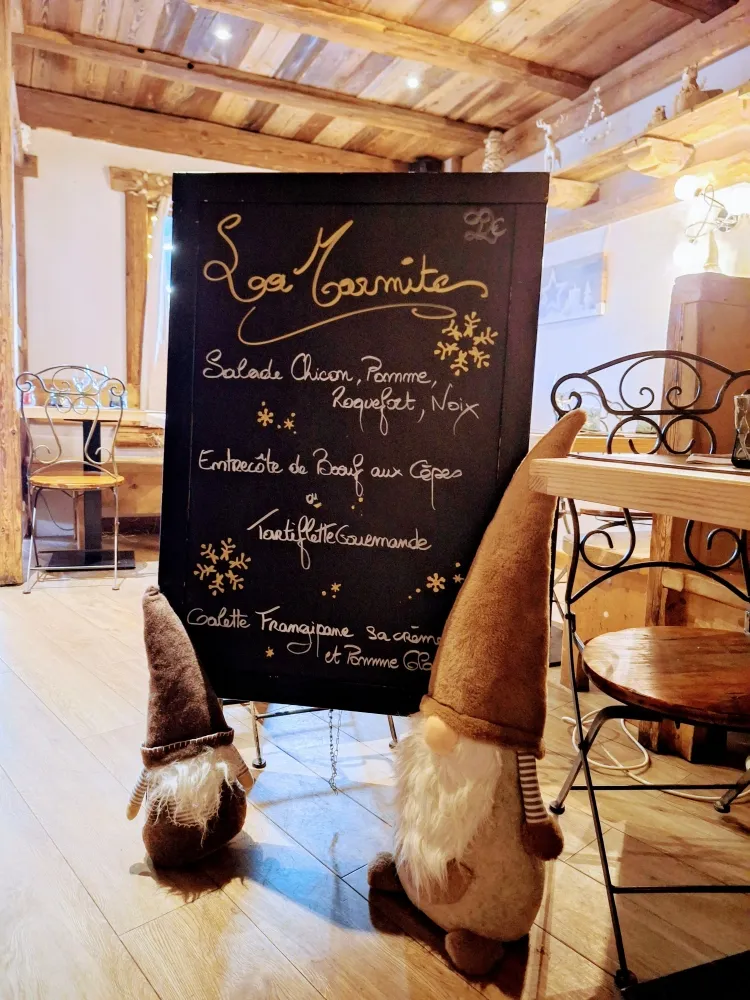 La Marmite
Salade Chicon, Pomme,
Roquefort, Noix
Entrecôte de Boeuf aux Cèpes
ou
Tartiflette Gourmande
Galette Frangipane sa crème
et Pomme